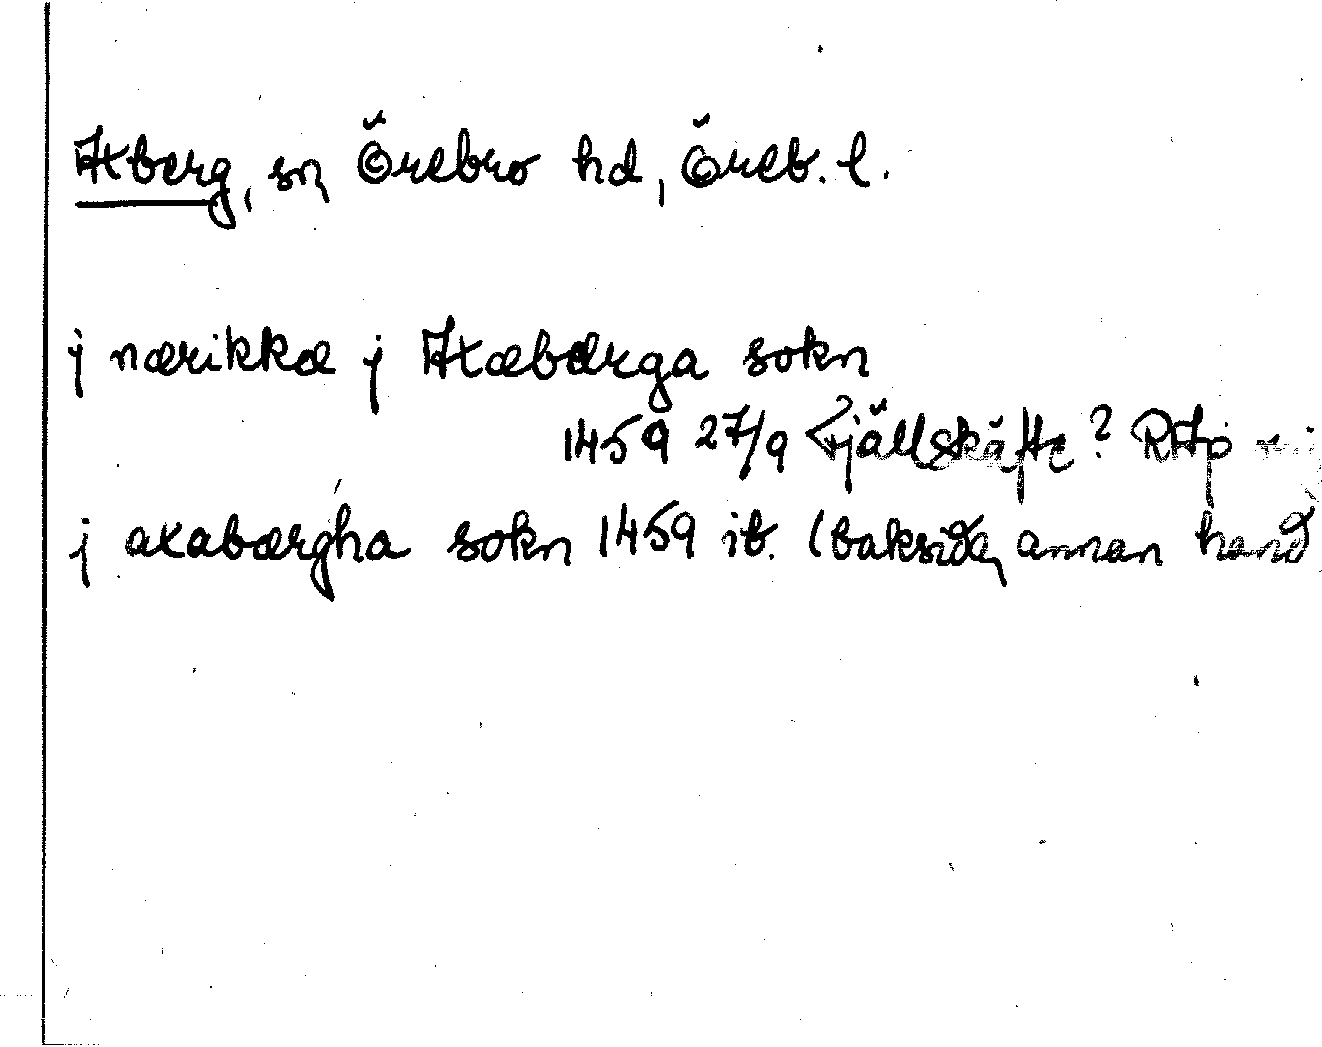 Axberg, sn, Örebro hd, Öreb. l.
j nærikkæ j Axæbærga sokn
1459 27/9 Fjällskäfte? RAp
j axabærgha sokn 1459 ib. (baksidan, annan hand